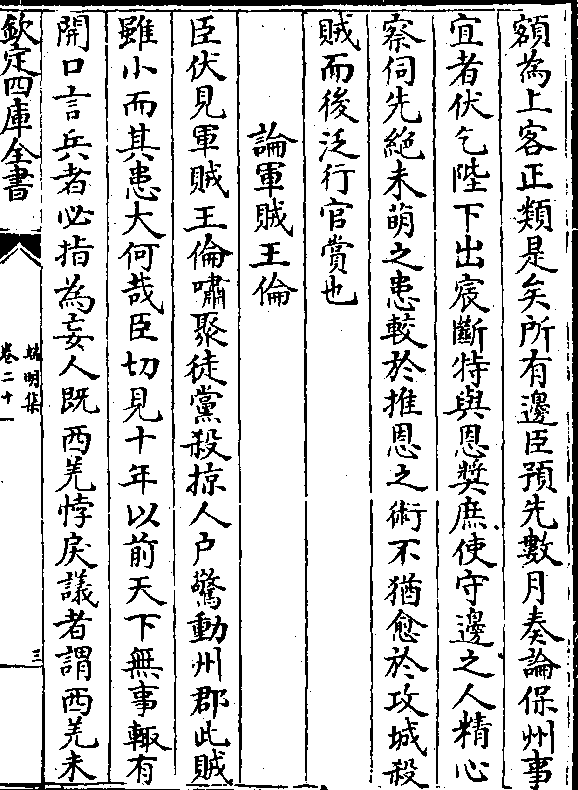 額為上客正類是矣所有邊臣預先數月奏論保州事
宜者伏乞陛下出宸斷特與恩獎庶使守邊之人精心
察伺先絶未萌之患較於推恩之術不猶愈於攻城殺
賊而後泛行官賞也
論軍賊王倫
臣伏見軍賊王倫嘯聚徒黨殺掠人户驚動州郡此賊
雖小而其患大何哉臣切見十年以前天下無事輙有
開口言兵者必指為妄人既西羌悖戾議者謂西羌未
欽定四庫全書
端明集
卷二十
三